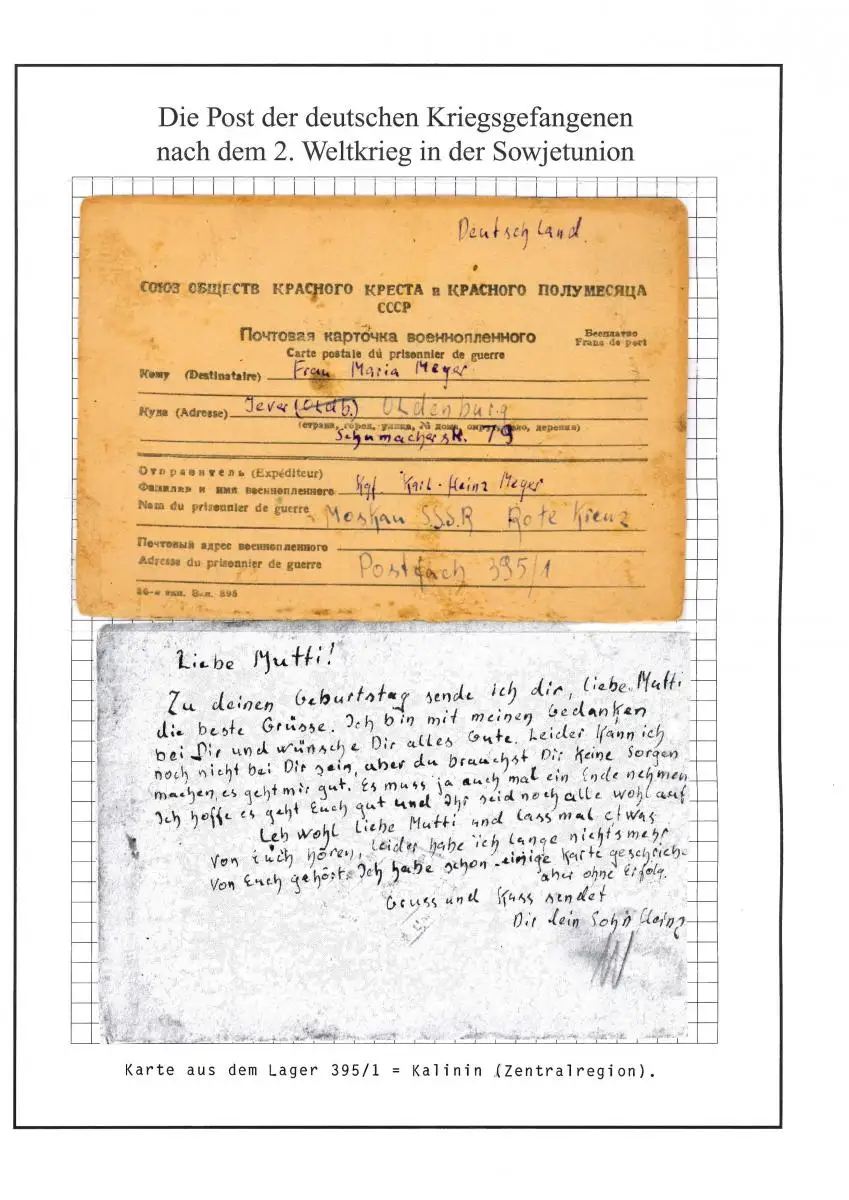 Die Post der deutschen Kriegsgefangenen
nach dem 2. Weltkrieg in der Sowjetunion
Deutschland.
СОЮЗ ОБЩЕСТВ КРАСНОГО КРЕСТА и КРАСНОГО ПОЛУМЕСЯЦА
СССР
Почтовая карточка военнопленного
Бесплатно
Carte postale du prisonnier de guerre
Franc de port
Кому (Destinataire) Frau Maria Meyer
Куда (Adresse) Jever (Oldb.) Oldenburg
(страна, город, улица, № дома, округ, село, деревня)
Schumacherstr. 79
Отправитель (Expéditeur)
Фамилия и имя военнопленного Kgf. Karl-Heinz Meyer
Nom du prisonnier de guerre Moskau S.S.S.R Rote Kreuz
Почтовый адрес военнопленного
Adresse du prisonnier de guerre Postfach 395/1
26-я тип. З-к. 895
Liebe Mutti!
Zu deinen Geburtstag sende ich dir, liebe Mutti
die beste Grüsse. Ich bin mit meinen Gedanken
bei Dir und wünsche Dir alles Gute. Leider kann ich
noch nicht bei Dir sein, aber du brauchst Dir keine Sorgen
machen, es geht mir gut. Es muss ja auch mal ein Ende nehmen
Ich hoffe es geht Euch gut und Ihr seid noch alle wohl auf
Leb wohl liebe Mutti und lass mal etwas
von Euch hören, leider habe ich lange nichts mehr
von Euch gehört. Ich habe schon einige Karte geschriebe
aber ohne Erfolg.
Gruss und Kuss sendet
Dir dein Sohn Heinz
Karte aus dem Lager 395/1 = Kalinin (Zentralregion).